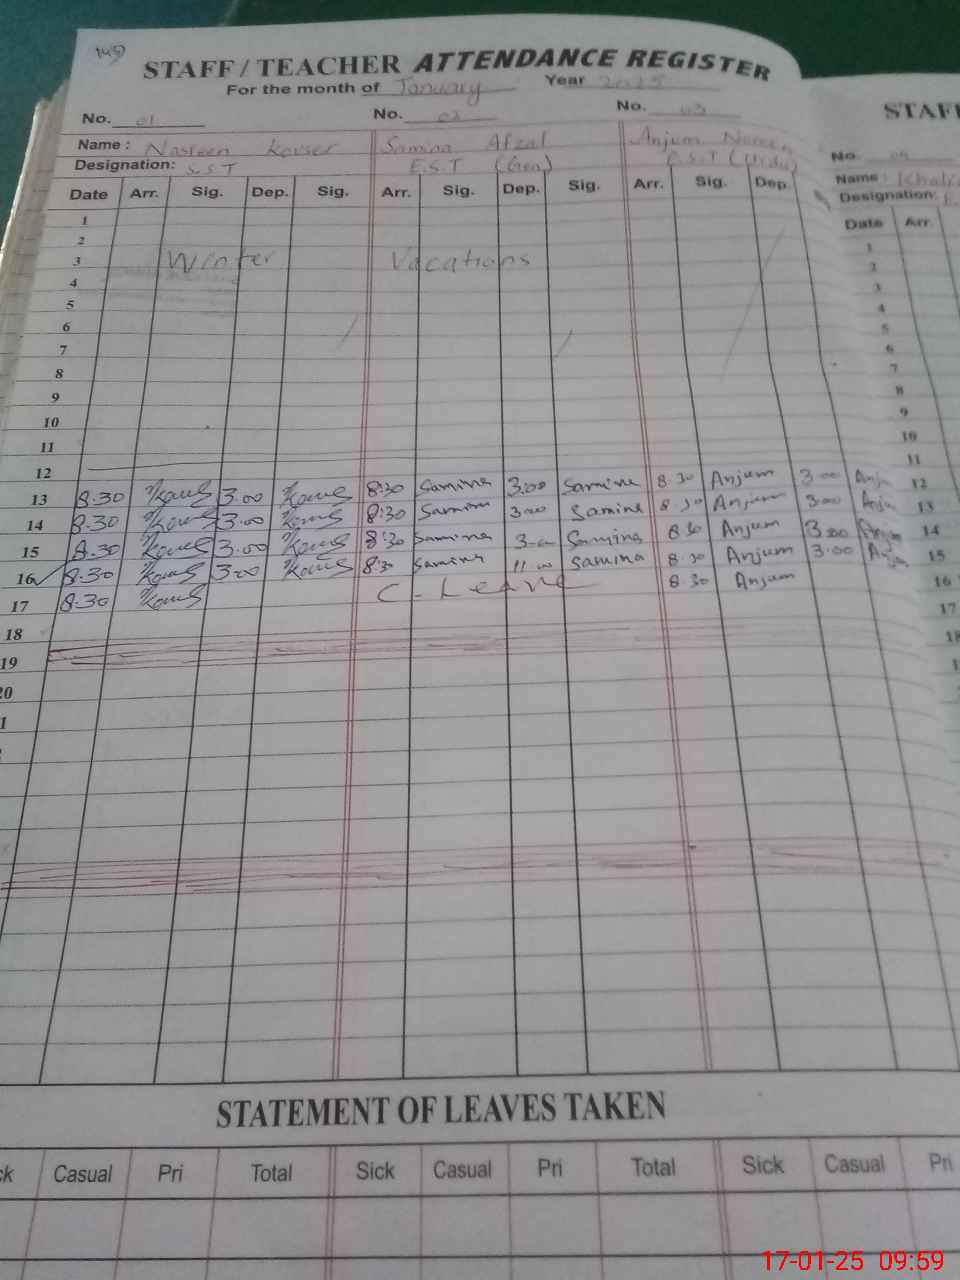 STAFF / TEACHER ATTENDANCE REGISTER
For the month of January Year 2025
No. 01 No. 02 No. 03
Name : Nasreen Kouser Samina Afzal Anjum
Designation: S.S.T E.S.T (Gen) E.S.T (Urdu)
Date Arr. Sig. Dep. Sig. Arr. Sig. Dep. Sig. Arr. Sig. Dep.
1
2
3 Winter Vacations
4
5
6
7
8
9
10
11
12
13 8.30 3.00 8:30 Samina 3:00 Samina 8.30 Anjum 3.00
14 8.30 3.00 8:30 Samina 3.00 Samina 8.30 Anjum 3.00
15 8.30 3.00 8:30 Samina Samina 8.30 Anjum 3.00 Anjum
16 8.30 3.00 8.30 Samina 11.00 Samina 8.30 Anjum 3.00
17 8.30 C-Leave 8.30 Anjum
18
19
20
1
STATEMENT OF LEAVES TAKEN
ck Casual Pri Total Sick Casual Pri Total Sick Casual Pri
STAF
No.
Name :
Designation:
Date Arr.
1
2
3
4
5
6
7
8
9
10
11
12
13
14
15
16
17
18
17-01-25 09:59